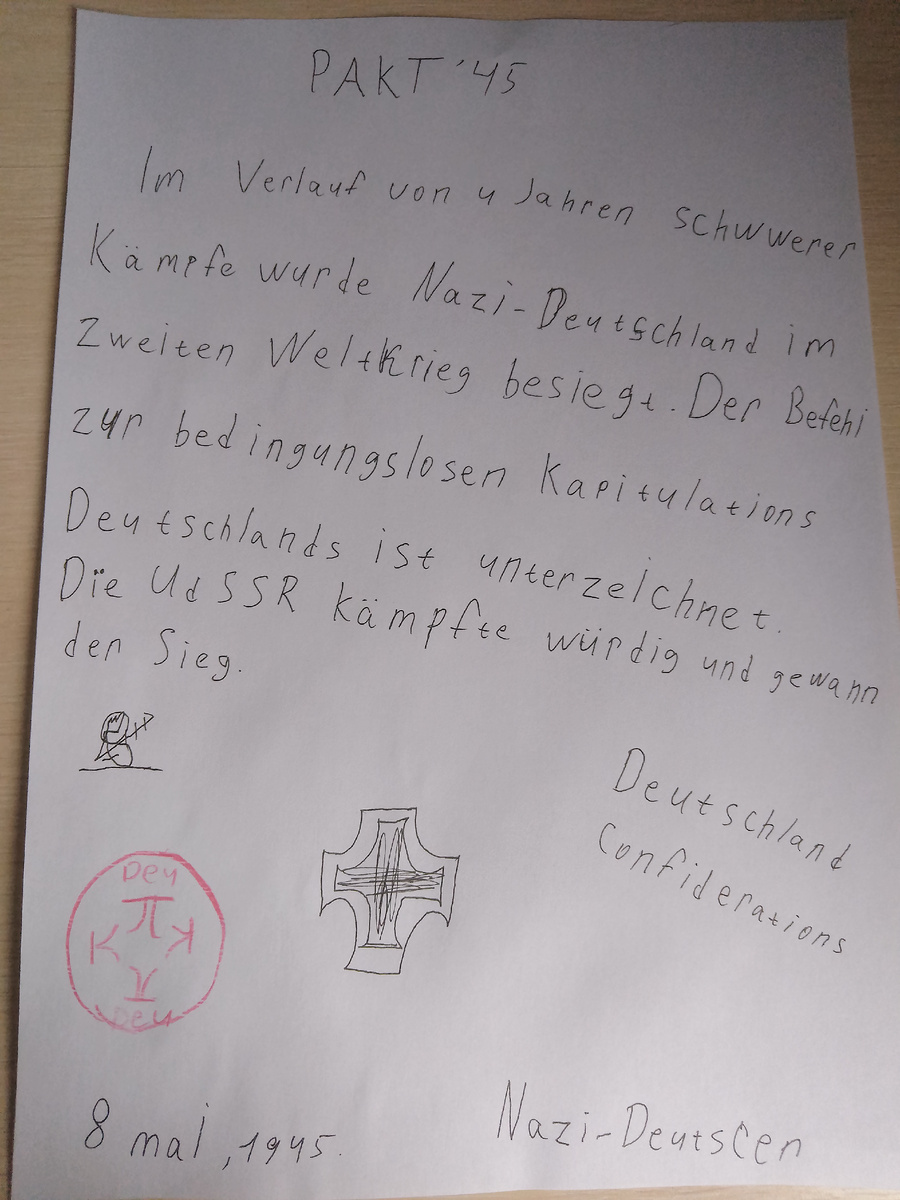 PAKT '45
Im Verlauf von 4 Jahren schwwerer
Kämpfe wurde Nazi-Deutschland im
Zweiten Weltkrieg besiegt. Der Befehl
zur bedingungslosen Kapitulations
Deutschlands ist unterzeichnet.
Die UdSSR kämpfte würdig und gewann
der Sieg.
Deutschland
Confiderations
Deu
Deu
8 mai, 1945.
Nazi-Deutscen